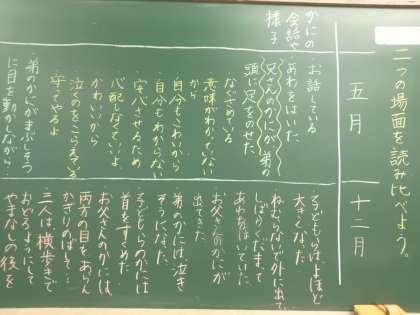 二つの場面を読み比べよう。
五月
十二月
かにの
会話や
様子
・お話している
・あわをはいた
・兄さんのかにが弟の
頭に足をのせた
なぐさめている
意味がわかっていない
から
・自分もこわいから
・自分もわからない
・安心させるため
・心配しないでいいよ
・かわいいから
・泣くのをこらえてる
・守ってやるよ
・弟のかにがまぶしそう
に目を動かしながら…
・子どもらは、よほど
大きくなった
・ねむらないで外に出て
しばらくだまって
あわをはいていた
・お父さんのかにが
出てきた
・弟のかには、泣き
そうになった
・子どもらのかには
首をすくめた
・お父さんのかには、
両方の目をあらん
かぎりのばして…
・三人は、横歩きで
おどるようにして
やまなしの後を